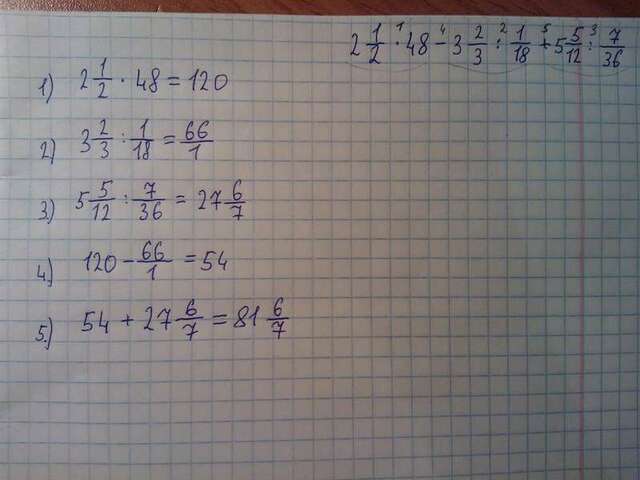 2 1/2 · 48 - 3 2/3 : 1/18 + 5 5/12 : 7/36
1 4 2 5 3
1) 2 1/2 · 48 = 120
2) 3 2/3 : 1/18 = 66/1
3.) 5 5/12 : 7/36 = 27 6/7
4.) 120 - 66/1 = 54
5.) 54 + 27 6/7 = 81 6/7